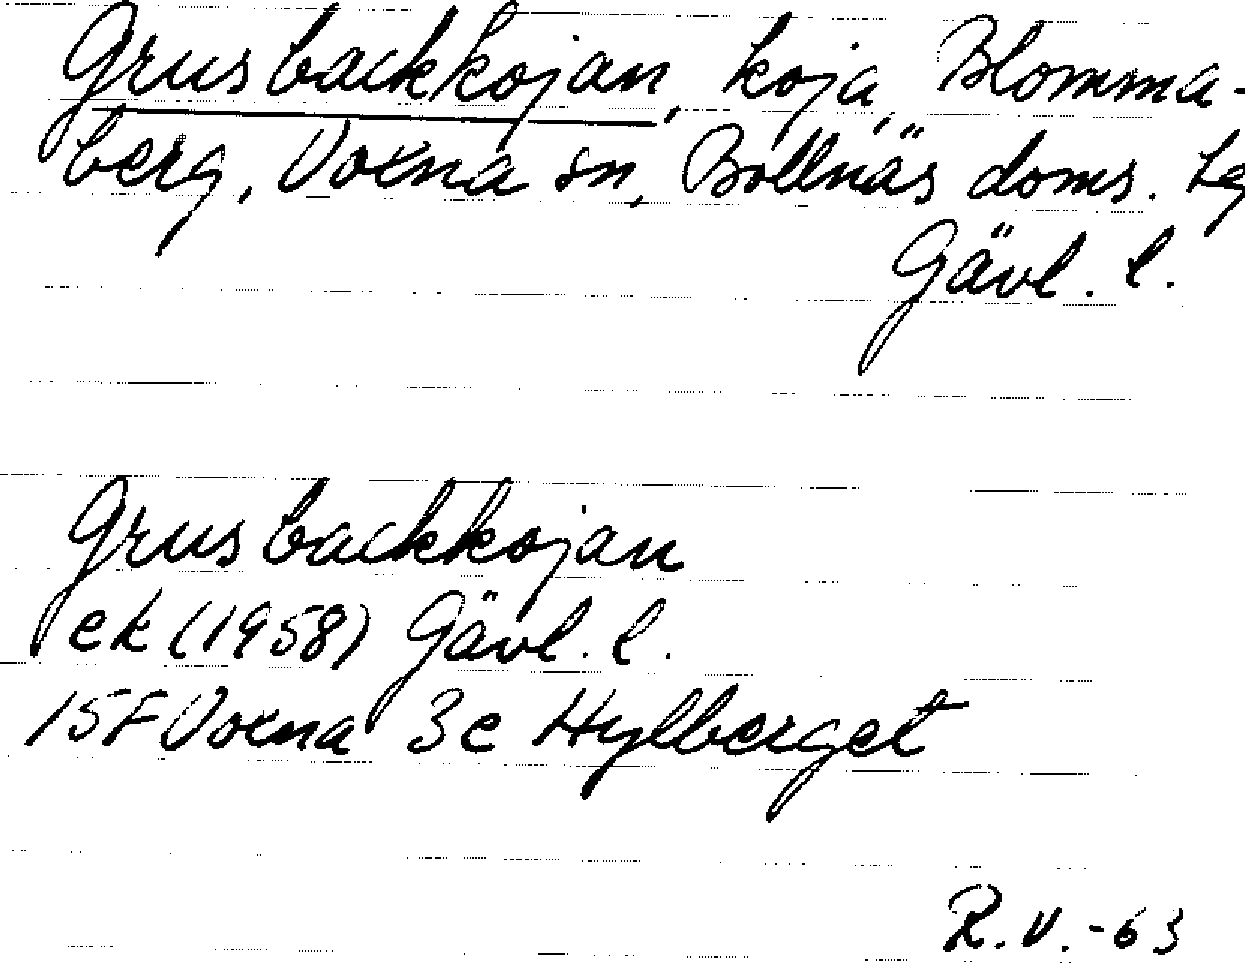 Grusbackkojan, koja, Blomma-
berg, Voxna sn, Bollnäs doms. Lg
Gävl. l.
Grusbackkojan
ek (1958) Gävl. l.
15F Voxna 3e Hylberget
R.V.-63